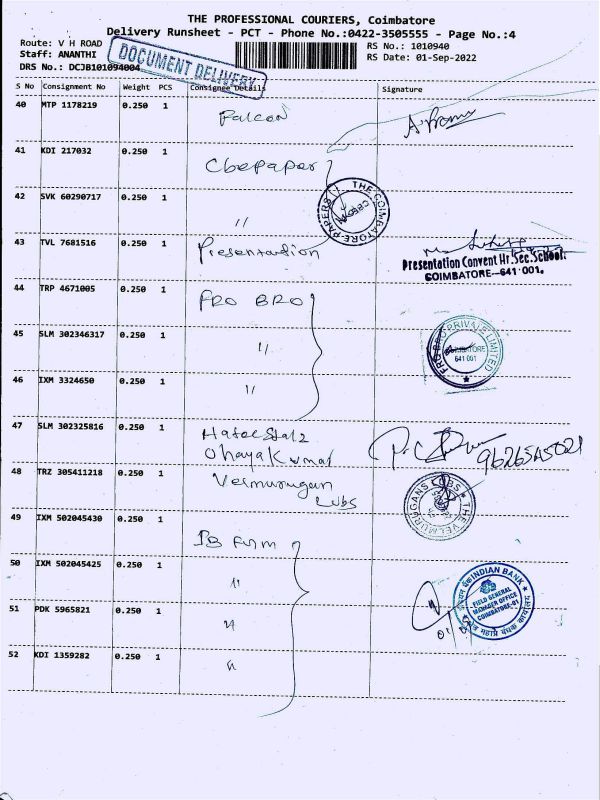 THE PROFESSIONAL COURIERS, Coimbatore
Delivery Runsheet - PCT - Phone No.:0422-3505555 - Page No.:4
Route: V H ROAD
RS No.: 1010940
Staff: ANANTHI
RS Date: 01-Sep-2022
DRS No.: DCJB101094004
DOCUMENT DELIVERY
S No Consignment No Weight PCS Consignee Details Signature
40 MTP 1178219 0.250 1 Falcon
41 KDI 217032 0.250 1 Cbepaper
42 SVK 60290717 0.250 1 "
THE COIMBATORE PAPERS
43 TVL 7681516 0.250 1 Presentation
Presentation Convent Hr.Sec.School.
COIMBATORE-641 001.
44 TRP 4671005 0.250 1 FRO BRO
45 SLM 302346317 0.250 1 "
FRO BRO PRIVATE LIMITED
COIMBATORE
641 001
46 IXM 3324650 0.250 1 "
47 SLM 302325816 0.250 1
48 TRZ 305411218 0.250 1 Velmurugan
Lubs
THE VELMURUGANS LUBS
49 IXM 502045430 0.250 1
50 IXM 502045425 0.250 1 "
INDIAN BANK
FIELD GENERAL
MANAGER OFFICE
COIMBATORE-01
51 PDK 5965821 0.250 1 "
52 KDI 1359282 0.250 1 "